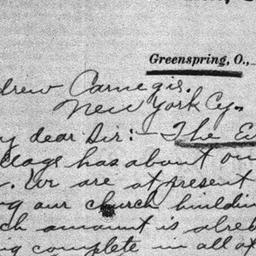 Greenspring, O.,
drew Carnegie.
New York Cy.
y dear Sir:- The Ev
llage has about on
. We are at present
ng our church buildin
ch amount is alre
ng complete in all o